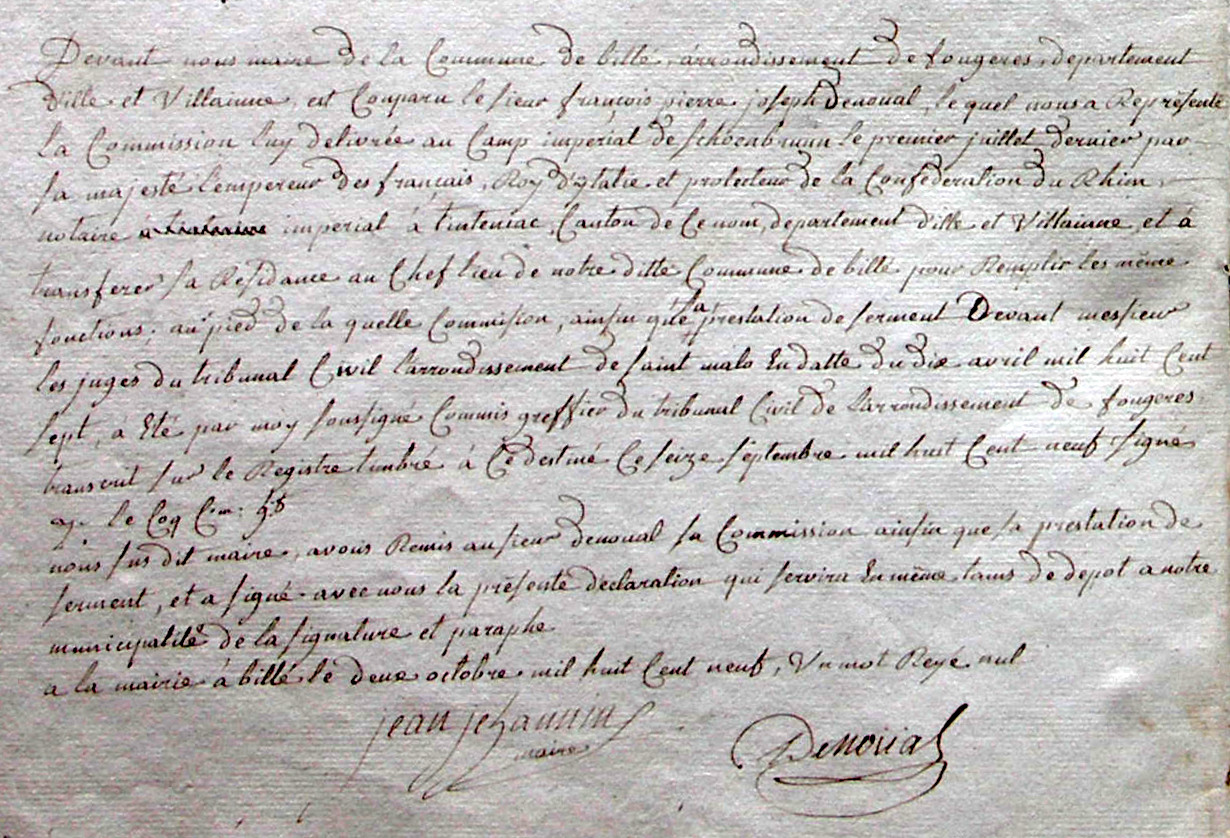 Devant nous maire de la Commune de billé, arrondissement de fougeres, departement
d'ille et Villainne, est Conparu le sieur françois pierre joseph Denoual, le quel nous a Représenté
la Commission luy delivrée au Camp imperial de schöenbrunn le premier juillet dernier par
sa majesté l'empereur des français, Roy d'ytalie et protecteur de la Confédération du Rhim
notaire imperial à tinteniac, Canton de Ce nom, departement d'ille et Villainne, et à
transferer sa Residance au Chef lieu de notre ditte Commune de billé pour Remplir les même
fonctions; au pied de la quelle Commission, ainsin que la prestation de serment Devant messieur
les juges du tribunal Civil l'arrondissement de saint malo En datte du dix avril mil huit Cent
sept, a Eté par moy soussigné Commis greffier du tribunal Civil de l'arrondissement de fougeres
transcrit sur le Registre timbré à Ce destiné Ce seize septembre mil huit Cent neuf signé
le Coq Cm:
nous sus dit maire, avons Remis au sieur denoual sa Commission ainsin que sa prestation de
serment, et a signé avec nous la présente declaration qui servira En même tams de depot a notre
municipalité de la signature et paraphe
a la mairie à billé le deux octobre mil huit Cent neuf, Un mot Reyé nul
jean jehannin Denoual
maire